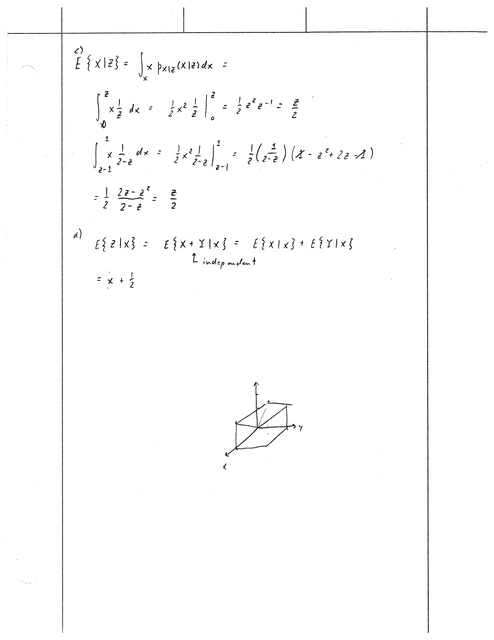 c)
E{X|Z} = ∫_x x p_{X|Z}(X|Z) dx =
∫_0^z x 1/z dx = 1/2 x² 1/z |_0^z = 1/2 z² z⁻¹ = z/2
∫_{z-1}^1 x 1/(2-z) dx = 1/2 x² 1/(2-z) |_{z-1}^1 = 1/2 (1/(2-z)) (1 - z² + 2z - 1)
= 1/2 (2z - z²)/(2 - z) = z/2
d)
E{Z|X} = E{X + Y|X} = E{X|X} + E{Y|X}
↑ independent
= x + 1/2
Y
X